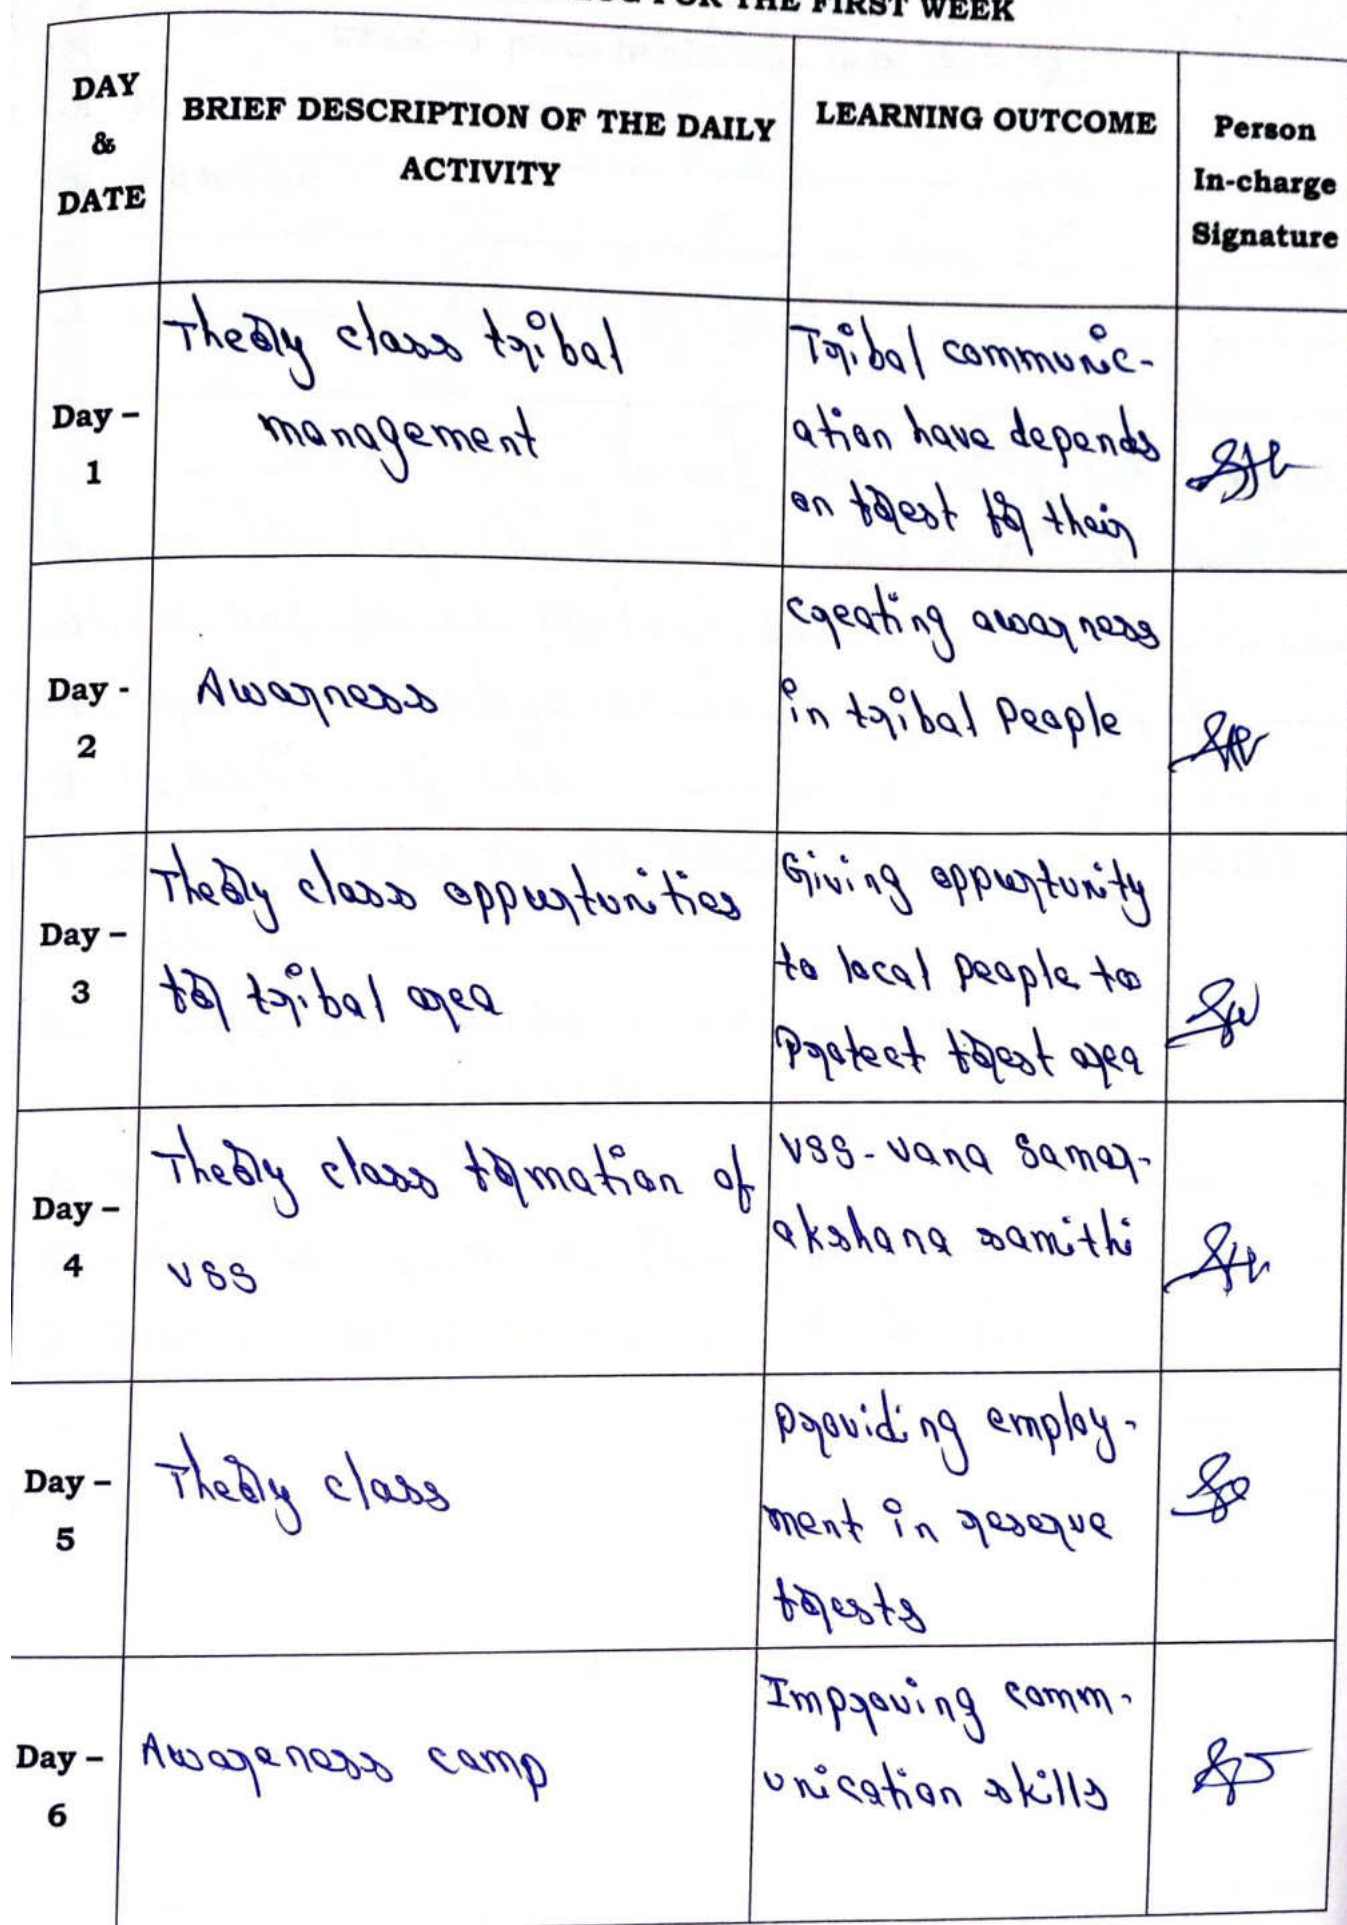 FOR THE FIRST WEEK
DAY
&
DATE
BRIEF DESCRIPTION OF THE DAILY
ACTIVITY
LEARNING OUTCOME
Person
In-charge
Signature
Day –
1
Theory class tribal
management
Tribal communic-
ation have depends
on forest for their
Day -
2
Awarness
creating awarness
in tribal People
Day –
3
Theory class oppurtunities
for tribal area
Giving oppurtunity
to local people to
Protect forest area
Day –
4
Theory class formation of
VSS
VSS - vana Samar-
akshana samithi
Day –
5
Theory class
providing employ-
ment in reserve
forests
Day –
6
Awareness camp
Improving comm-
unication skills